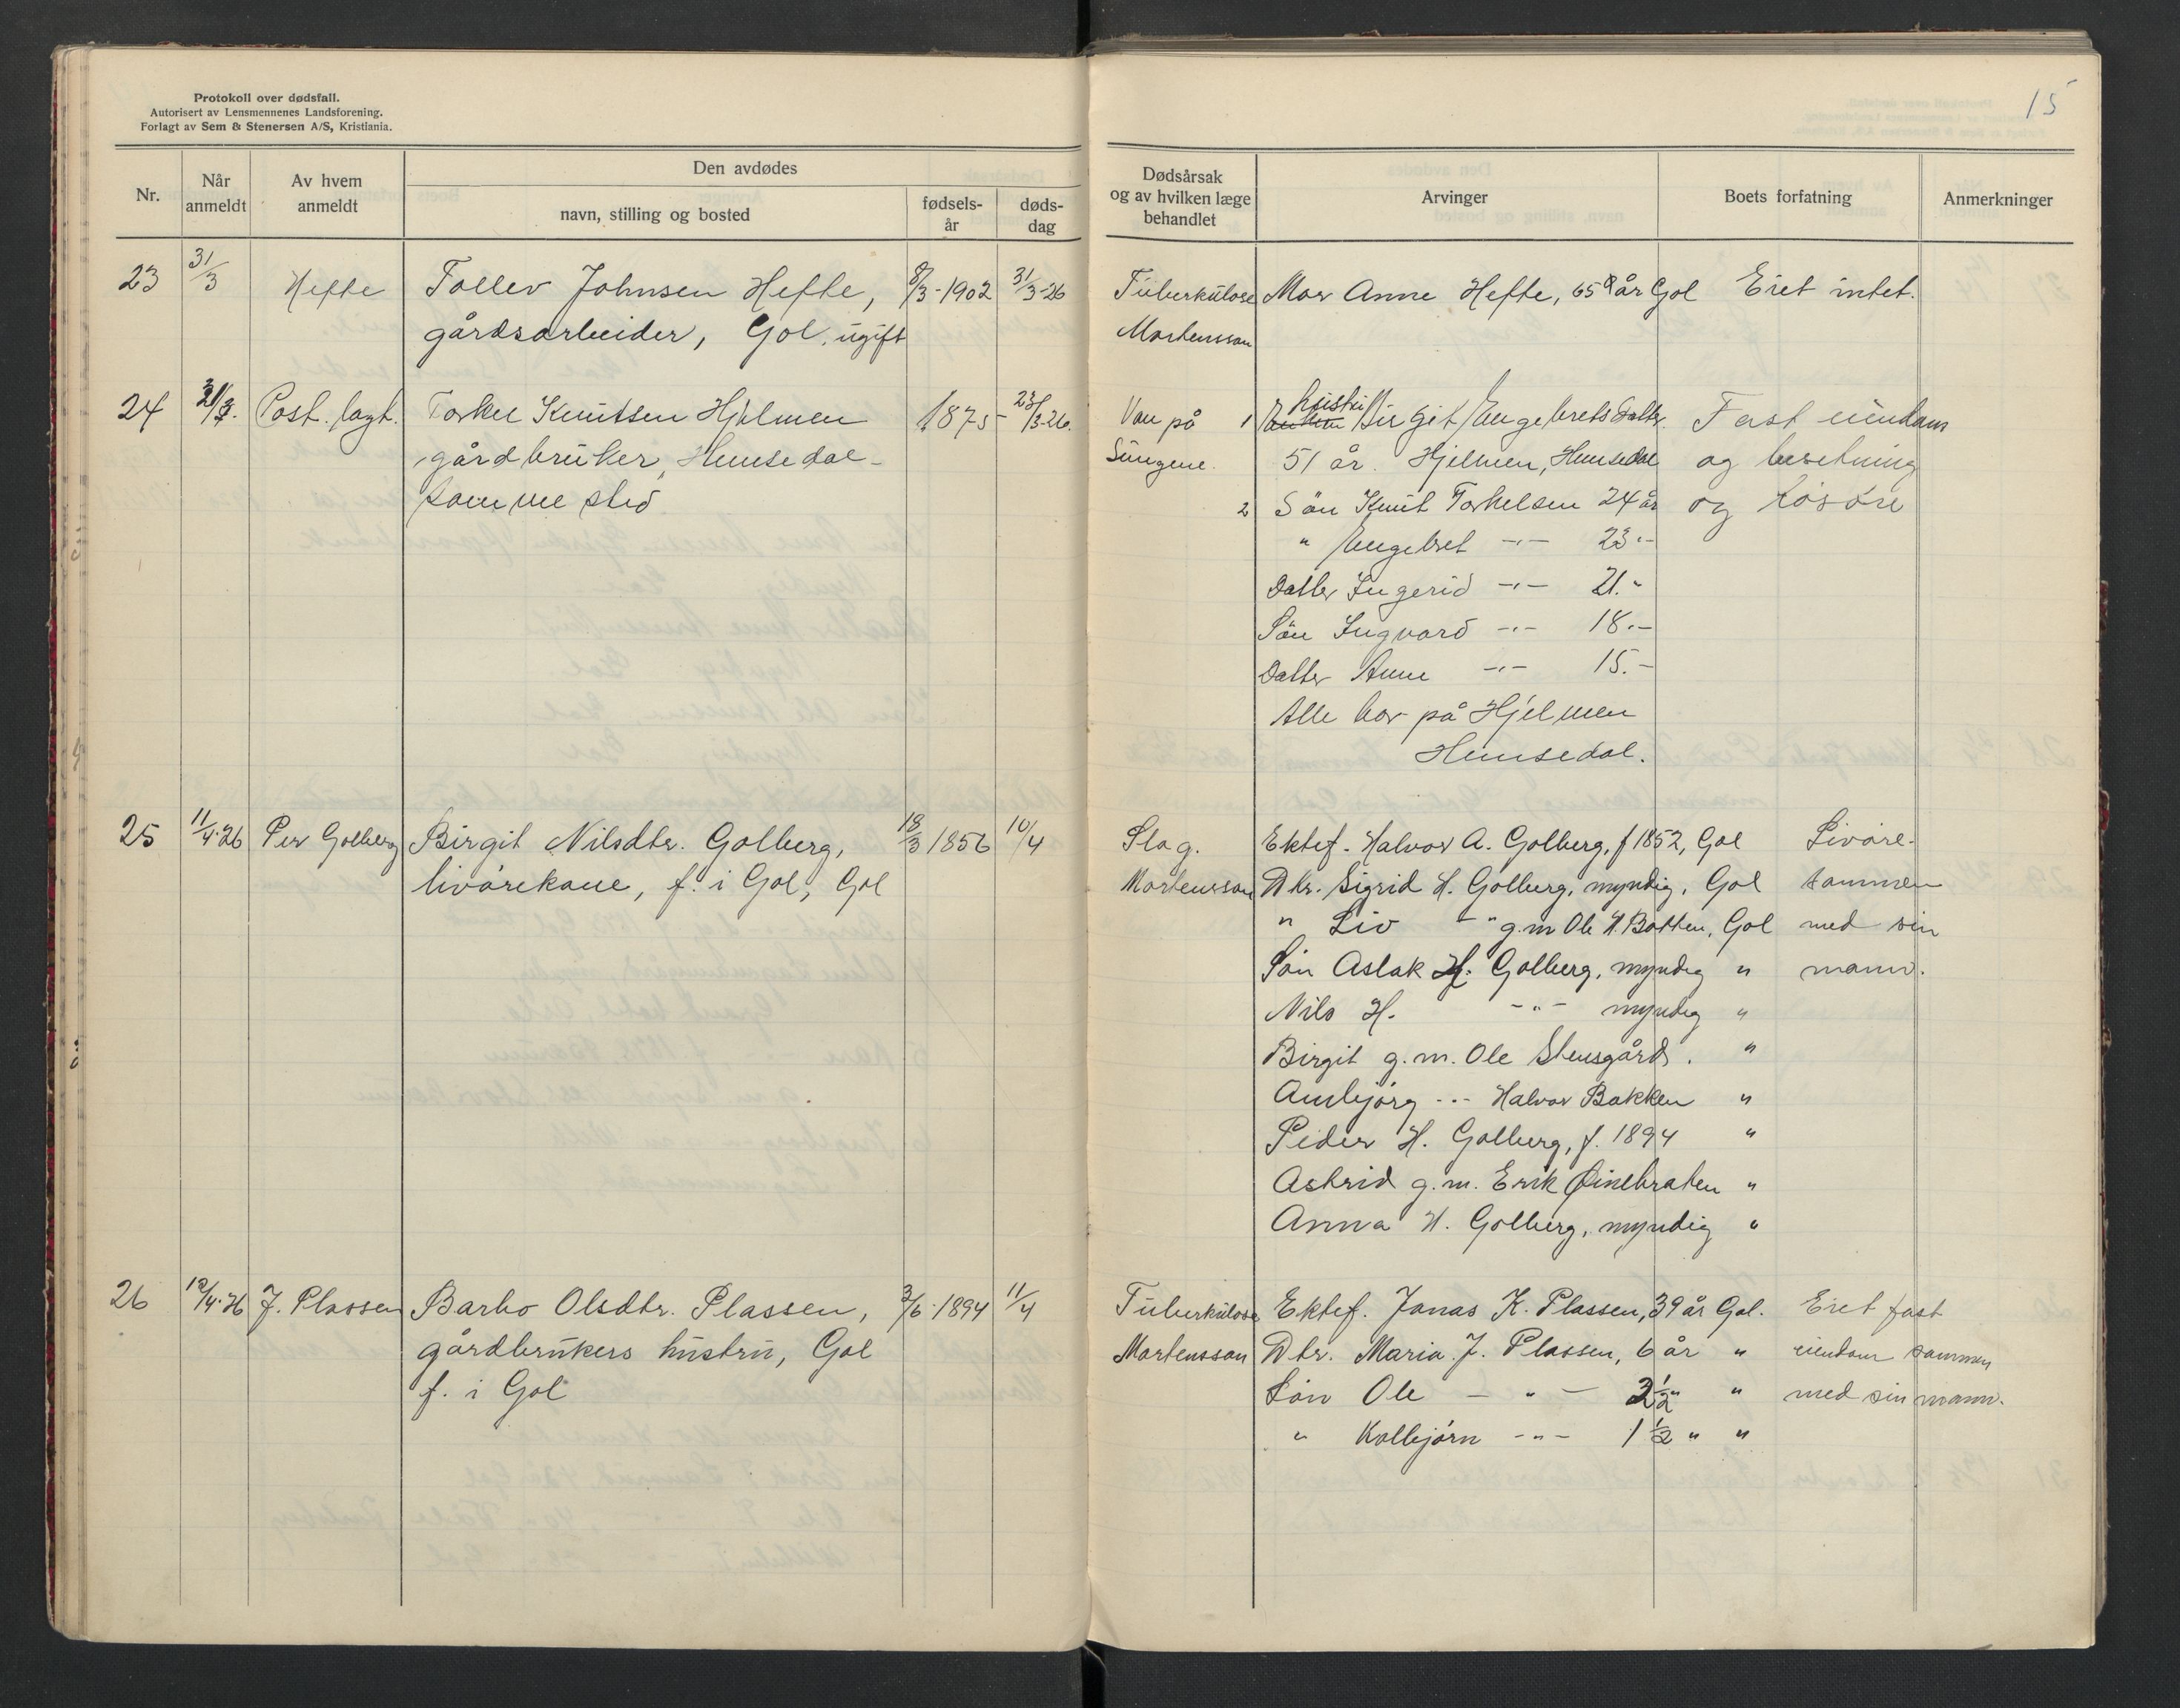 15
Protokoll over dødsfall.
Autorisert av Lensmennenes Landsforening.
Forlagt av Sem & Stenersen A/S, Kristiania.
Nr.
Når anmeldt
Av hvem anmeldt
Den avdødes
navn, stilling og bosted
fødselsår
dødsdag
Dødsårsak og av hvilken læge behandlet
Arvinger
Boets forfatning
Anmerkninger
23 31/3 Hefte Tollev Johnsen Hefte, 8/3-1902 31/3-26 Tüberkülose Mor Anne Hefte, 65 år Gol Eiet intet.
gårdsarbeider, Gol, ügift Mortensson
24 Post. lagt. Torkel Knütsen Hjelmen 1875 23/3-26. Van på 1 Birgit Engebretsdatter Fast eiendom
gårdbrüker, Hemsedal- Lüngene. 51 år. Hjelmen, Hemsedal og besetning
samme sted 2 Sön Knüt Torkelsen 24 år og lösöre
" Engebret -"- 23 "-
Datter Ingerid -"- 21. "
Sön Ingvard -"- 18.-
Datter Anne -"- 15.-
Alle bor på Hjelmen
Hemsedal.
25 11/4-26 Per Golberg Birgit Nilsdtr. Golberg, 18/3 1856 10/4 Slag. Ektef. Halvor A. Golberg, f 1852, Gol Livöre-
livörekone, f. i Gol, Gol Mortensson Dtr. Sigrid H. Golberg, myndig, Gol sammen
" Liv - " g.m Ole H. Botten, Gol med sin
Sön Aslak H. Golberg, myndig " mann.
Nils H. -"- myndig "
Birgit g.m. Ole Stensgård. "
Ambjörg -"- Halvor Bakken "
Peder H. Golberg, f. 1894 "
Astrid g.m. Erik "
Anna H. Golberg, myndig "
26 12/4-26 J. Plassen Barbo Olsdtr. Plassen, 3/6-1894 11/4 Tüberkülose Ektef. Jonas K. Plassen, 39 år Gol. Eiet fast
gårdbrükers hüstrü, Gol Mortensson Dtr. Maria J. Plassen, 6 år " eiendom sammen
f. i Gol Sön Ole - " - 2½ " " med sin mann.
" Kolbjörn -"- 1½ " "